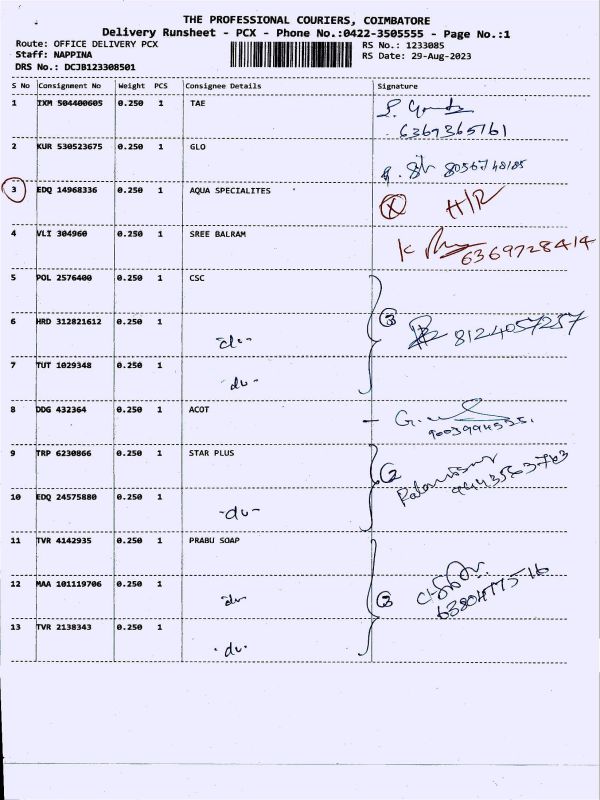 THE PROFESSIONAL COURIERS, COIMBATORE
Delivery Runsheet - PCX - Phone No.:0422-3505555 - Page No.:1
Route: OFFICE DELIVERY PCX RS No.: 1233085
Staff: NAPPINA RS Date: 29-Aug-2023
DRS No.: DCJB123308501
S No Consignment No Weight PCS Consignee Details Signature
1 IXM 504400605 0.250 1 TAE
6369365761
2 KUR 530523675 0.250 1 GLO 8056748185
3 EDQ 14968336 0.250 1 AQUA SPECIALITES X H/R
4 VLI 304960 0.250 1 SREE BALRAM 6369728414
5 POL 2576400 0.250 1 CSC
6 HRD 312821612 0.250 1 -do- 3 8124057257
7 TUT 1029348 0.250 1 -do-
8 DDG 432364 0.250 1 ACOT
9003994535.
9 TRP 6230866 0.250 1 STAR PLUS 2 9443563763
10 EDQ 24575880 0.250 1 -do-
11 TVR 4142935 0.250 1 PRABU SOAP
12 MAA 101119706 0.250 1 -do- 3
13 TVR 2138343 0.250 1 -do-